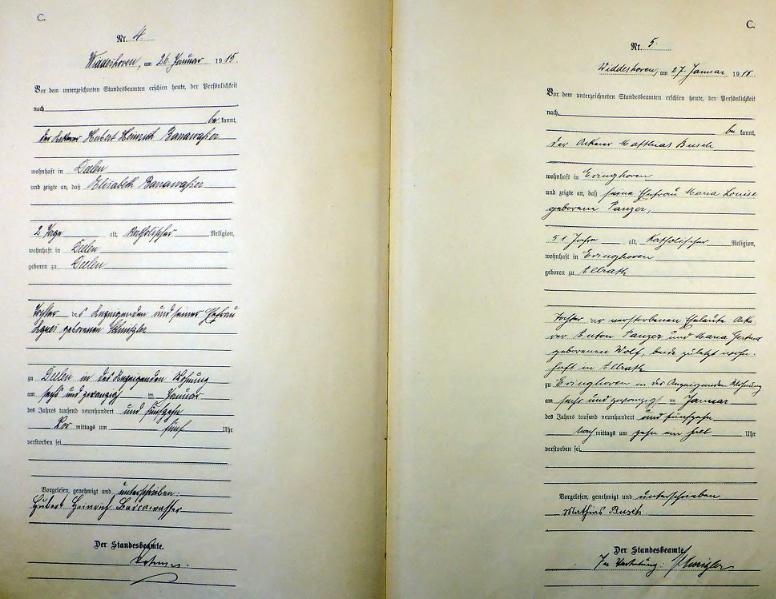 C.
Nr. 4.
Widdeshoven, am 26. Januar 1915.
Vor dem unterzeichneten Standesbeamten erschien heute, der Persönlichkeit
nach
be kannt,
der Ackerer Hubert Heinrich
wohnhaft in Deelen
und zeigte an, daß Elisabeth
2 Tage alt, katholischer Religion,
wohnhaft in Deelen
geboren zu Deelen
Tochter des Anzeigenden und seiner Ehefrau
Agnes geborenen
zu Deelen in des Anzeigenden Wohnung
am sechs und zwanzig ten Januar
des Jahres tausend neunhundert und fünfzehn
Vor mittags um fünf Uhr
verstorben sei
Vorgelesen, genehmigt und unterschrieben:
Hubert Heinrich
Der Standesbeamte.
C.
Nr. 5.
Widdeshoven, am 27. Januar 1915.
Vor dem unterzeichneten Standesbeamten erschien heute, der Persönlichkeit
nach
be kannt,
der Ackerer Matthias Busch
wohnhaft in Evinghoven
und zeigte an, daß seine Ehefrau Maria Louise
geborene Panzer,
51 Jahre alt, katholischer Religion,
wohnhaft in Evinghoven
geboren zu Allrath
Tochter der verstorbenen Eheleute Acke
rer Anton Panzer und Maria Gertrud
geborenen Wolf, beide zuletzt wohn-
haft in Allrath
zu Evinghoven in des Anzeigenden Wohnung
am sechs und zwanzig ten Januar
des Jahres tausend neunhundert und fünfzehn
Nach mittags um zehn ein halb Uhr
verstorben sei
Vorgelesen, genehmigt und unterschrieben
Mathias Busch
Der Standesbeamte.
In Vertretung: